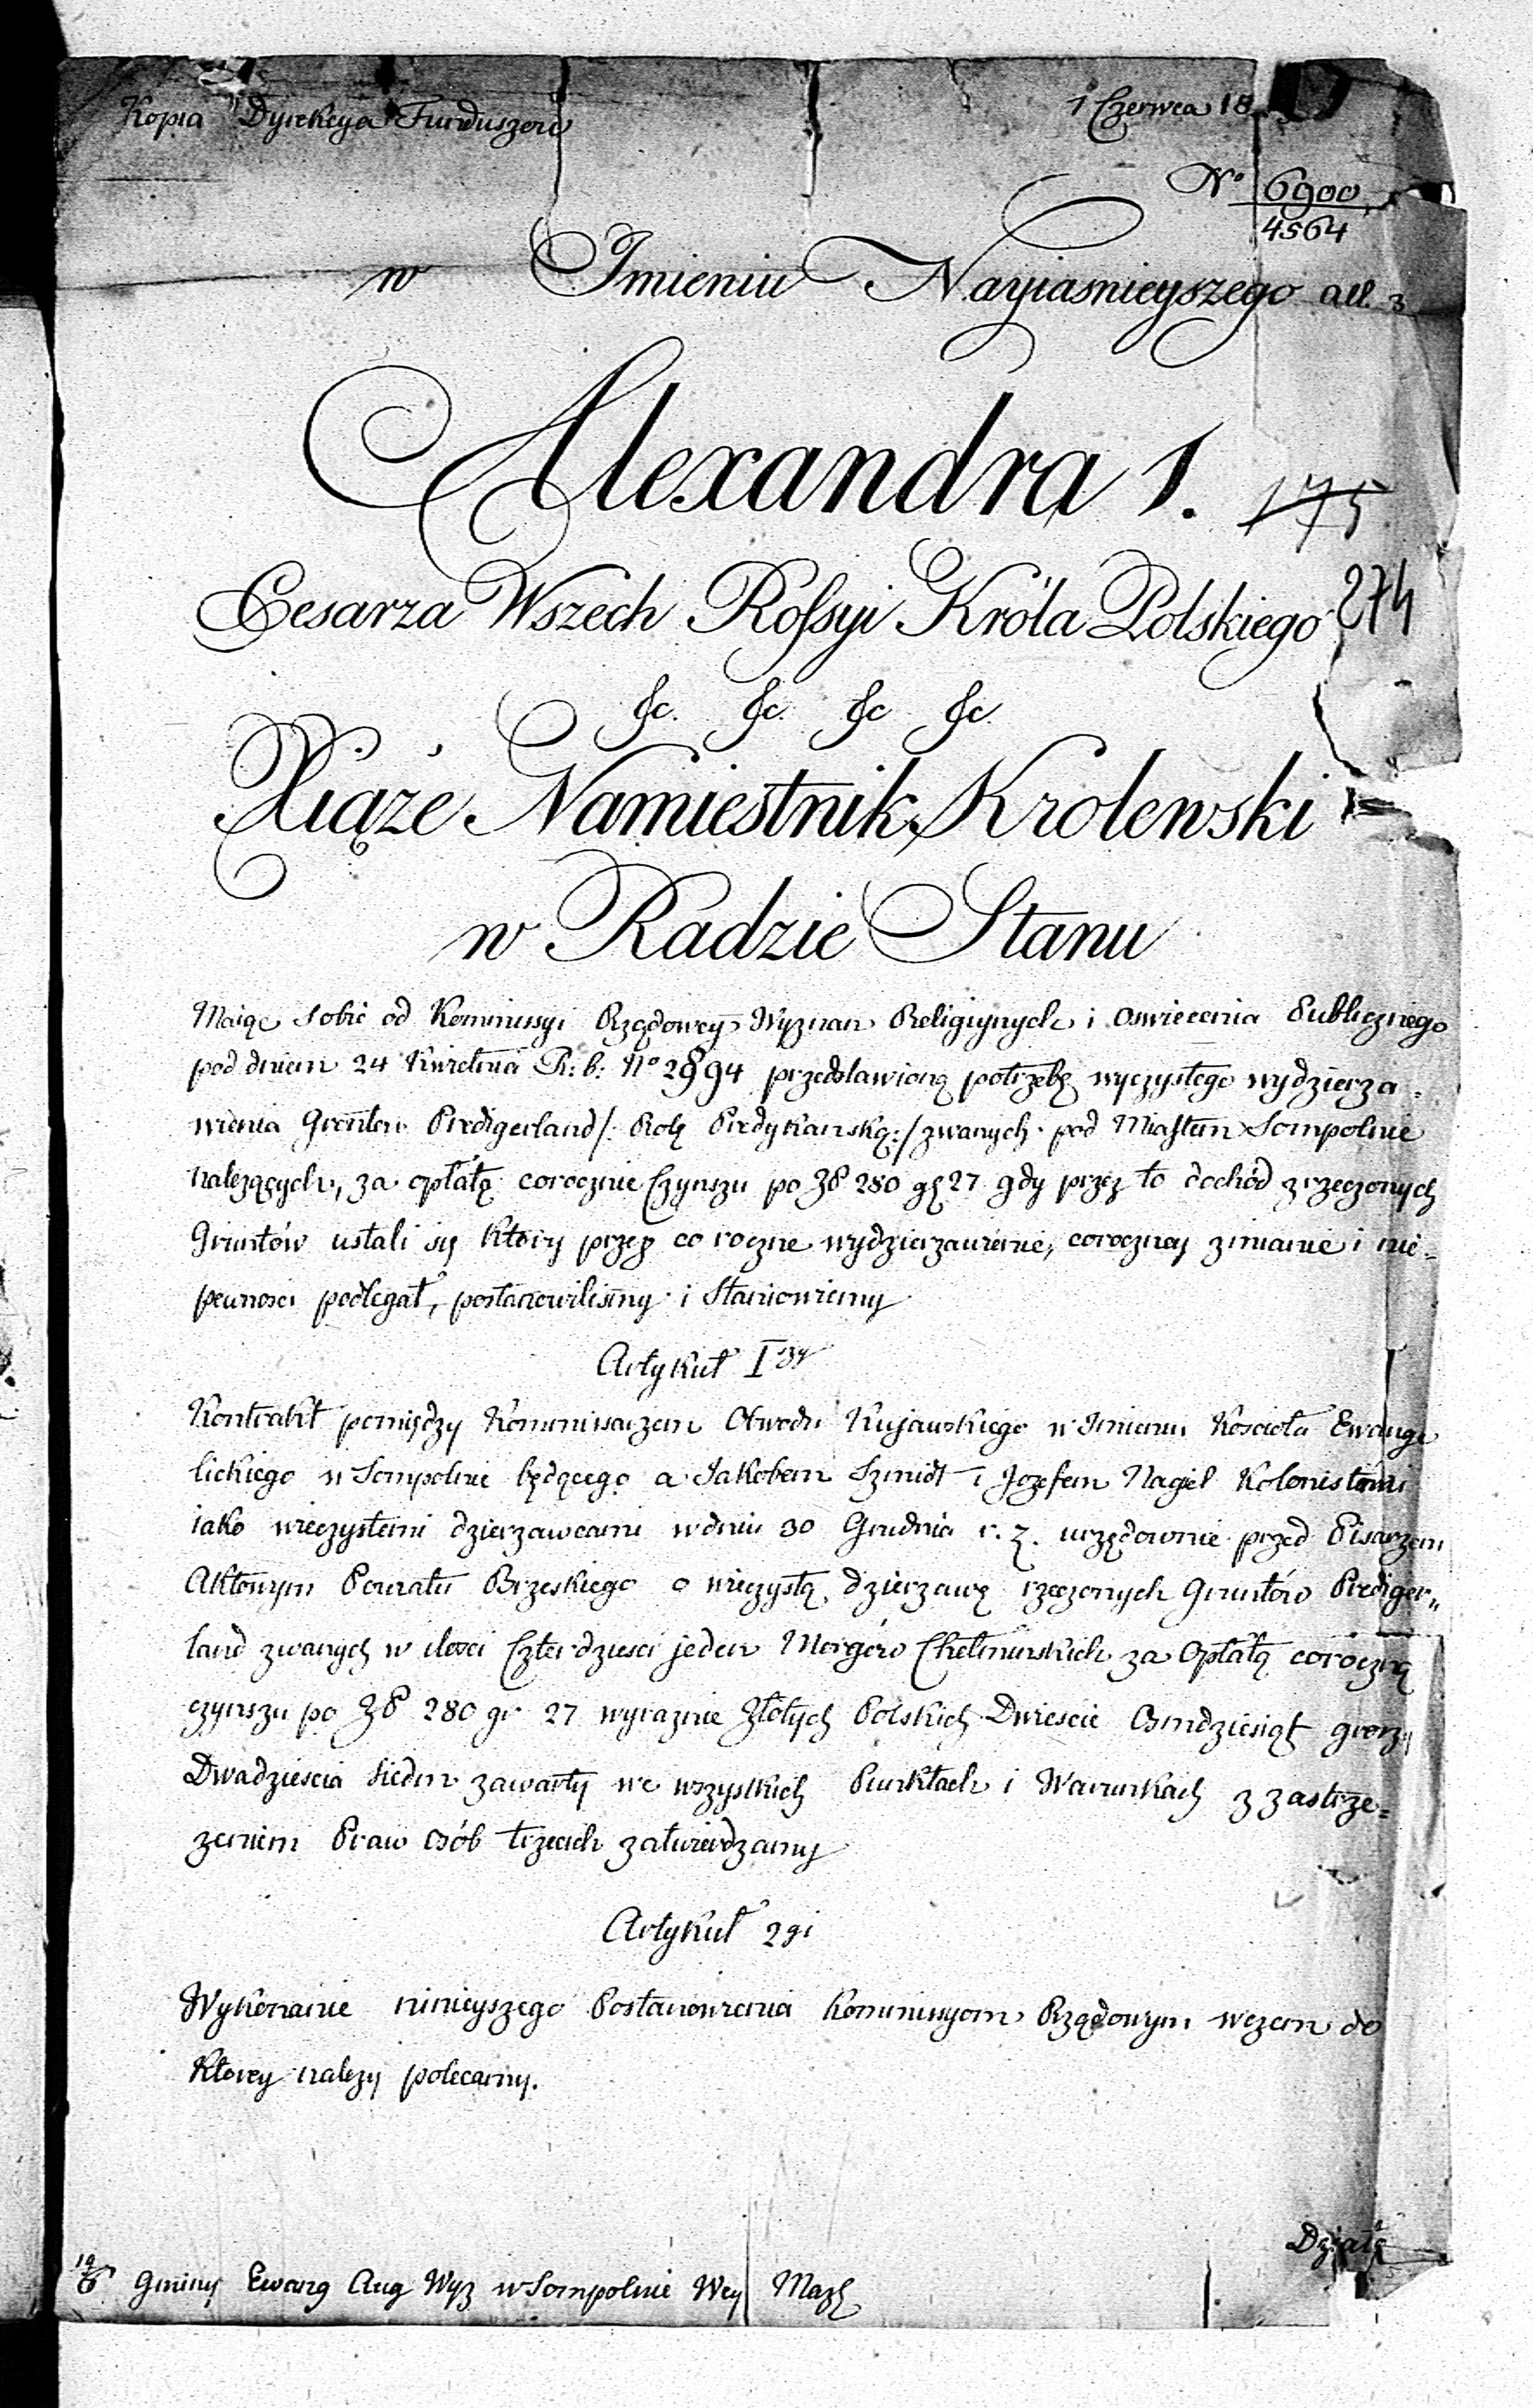 Kopia Dyrekcya Funduszow
1 Czerwca 18
Nº 6900
4564
w Imieniu Nayiasnieyszego all. 3
Alexandra 1.
175
Cesarza Wszech Roſsyi Króla Polskiego
274
&c. &c. &c &c.
Xiąże Namiestnik Krolewski
w Radzie Stanu
Maiąc sobie od Kommissyi Rządowey Wyznan Religiynych i Oswiecenia Publicznego
pod dniem 24 Kwietnia R: b: Nº 2894 przedstawioną potrzebę wyczystego wydzierza-
wienia Gruntow Predigerland /: Rolę Predykanską :/ zwanych pod Miastem Sompolnie
należących, za opłatą corocznie Czynszu po Zł 280 gr 27 gdy przez to dochód z rzeczonych
Gruntów ustali się który przez co roczne wydzierzawienie, coroczney zmianie i nie-
pewnosci podlegał, postanowilismy i Stanowiemy
Artykuł I szy
Kontrakt pomiędzy Kommissarzem Obwodu Kujawskiego w Imieniu Koscioła Ewange
lickiego w Sompolnie będącego a Jakobem Szmidt i Jozefem Nagel Kolonistami
iako wieczystemi dzierzawcami w dniu 30 Grudnia r. z. urzędownie przed Pisarzem
Aktowym Powiatu Brzeskiego o wieczystą dzierzawę rzeczonych Gruntów Prediger„
land zwanych w ilosci Czterdziesci jeden Morgów Chełminskich za Opłatą coroczną
czynszu po Zł 280 gr 27 wyraznie Złotych Polskich Dwiescie Osmdziesiąt groszy
Dwadziescia siedm zawarty we wszystkich Punktach i Warunkach z zastrze-
zeniem Praw osób trzecich zatwierdzamy
Artykuł 2gi
Wykonanie ninieyszego Postanowienia Kommissyom Rządowym wczem do
ktorey nalezy polecamy.
Działo
Gminy Ewang Aug Wyz w Sompolnie Wey Mazę